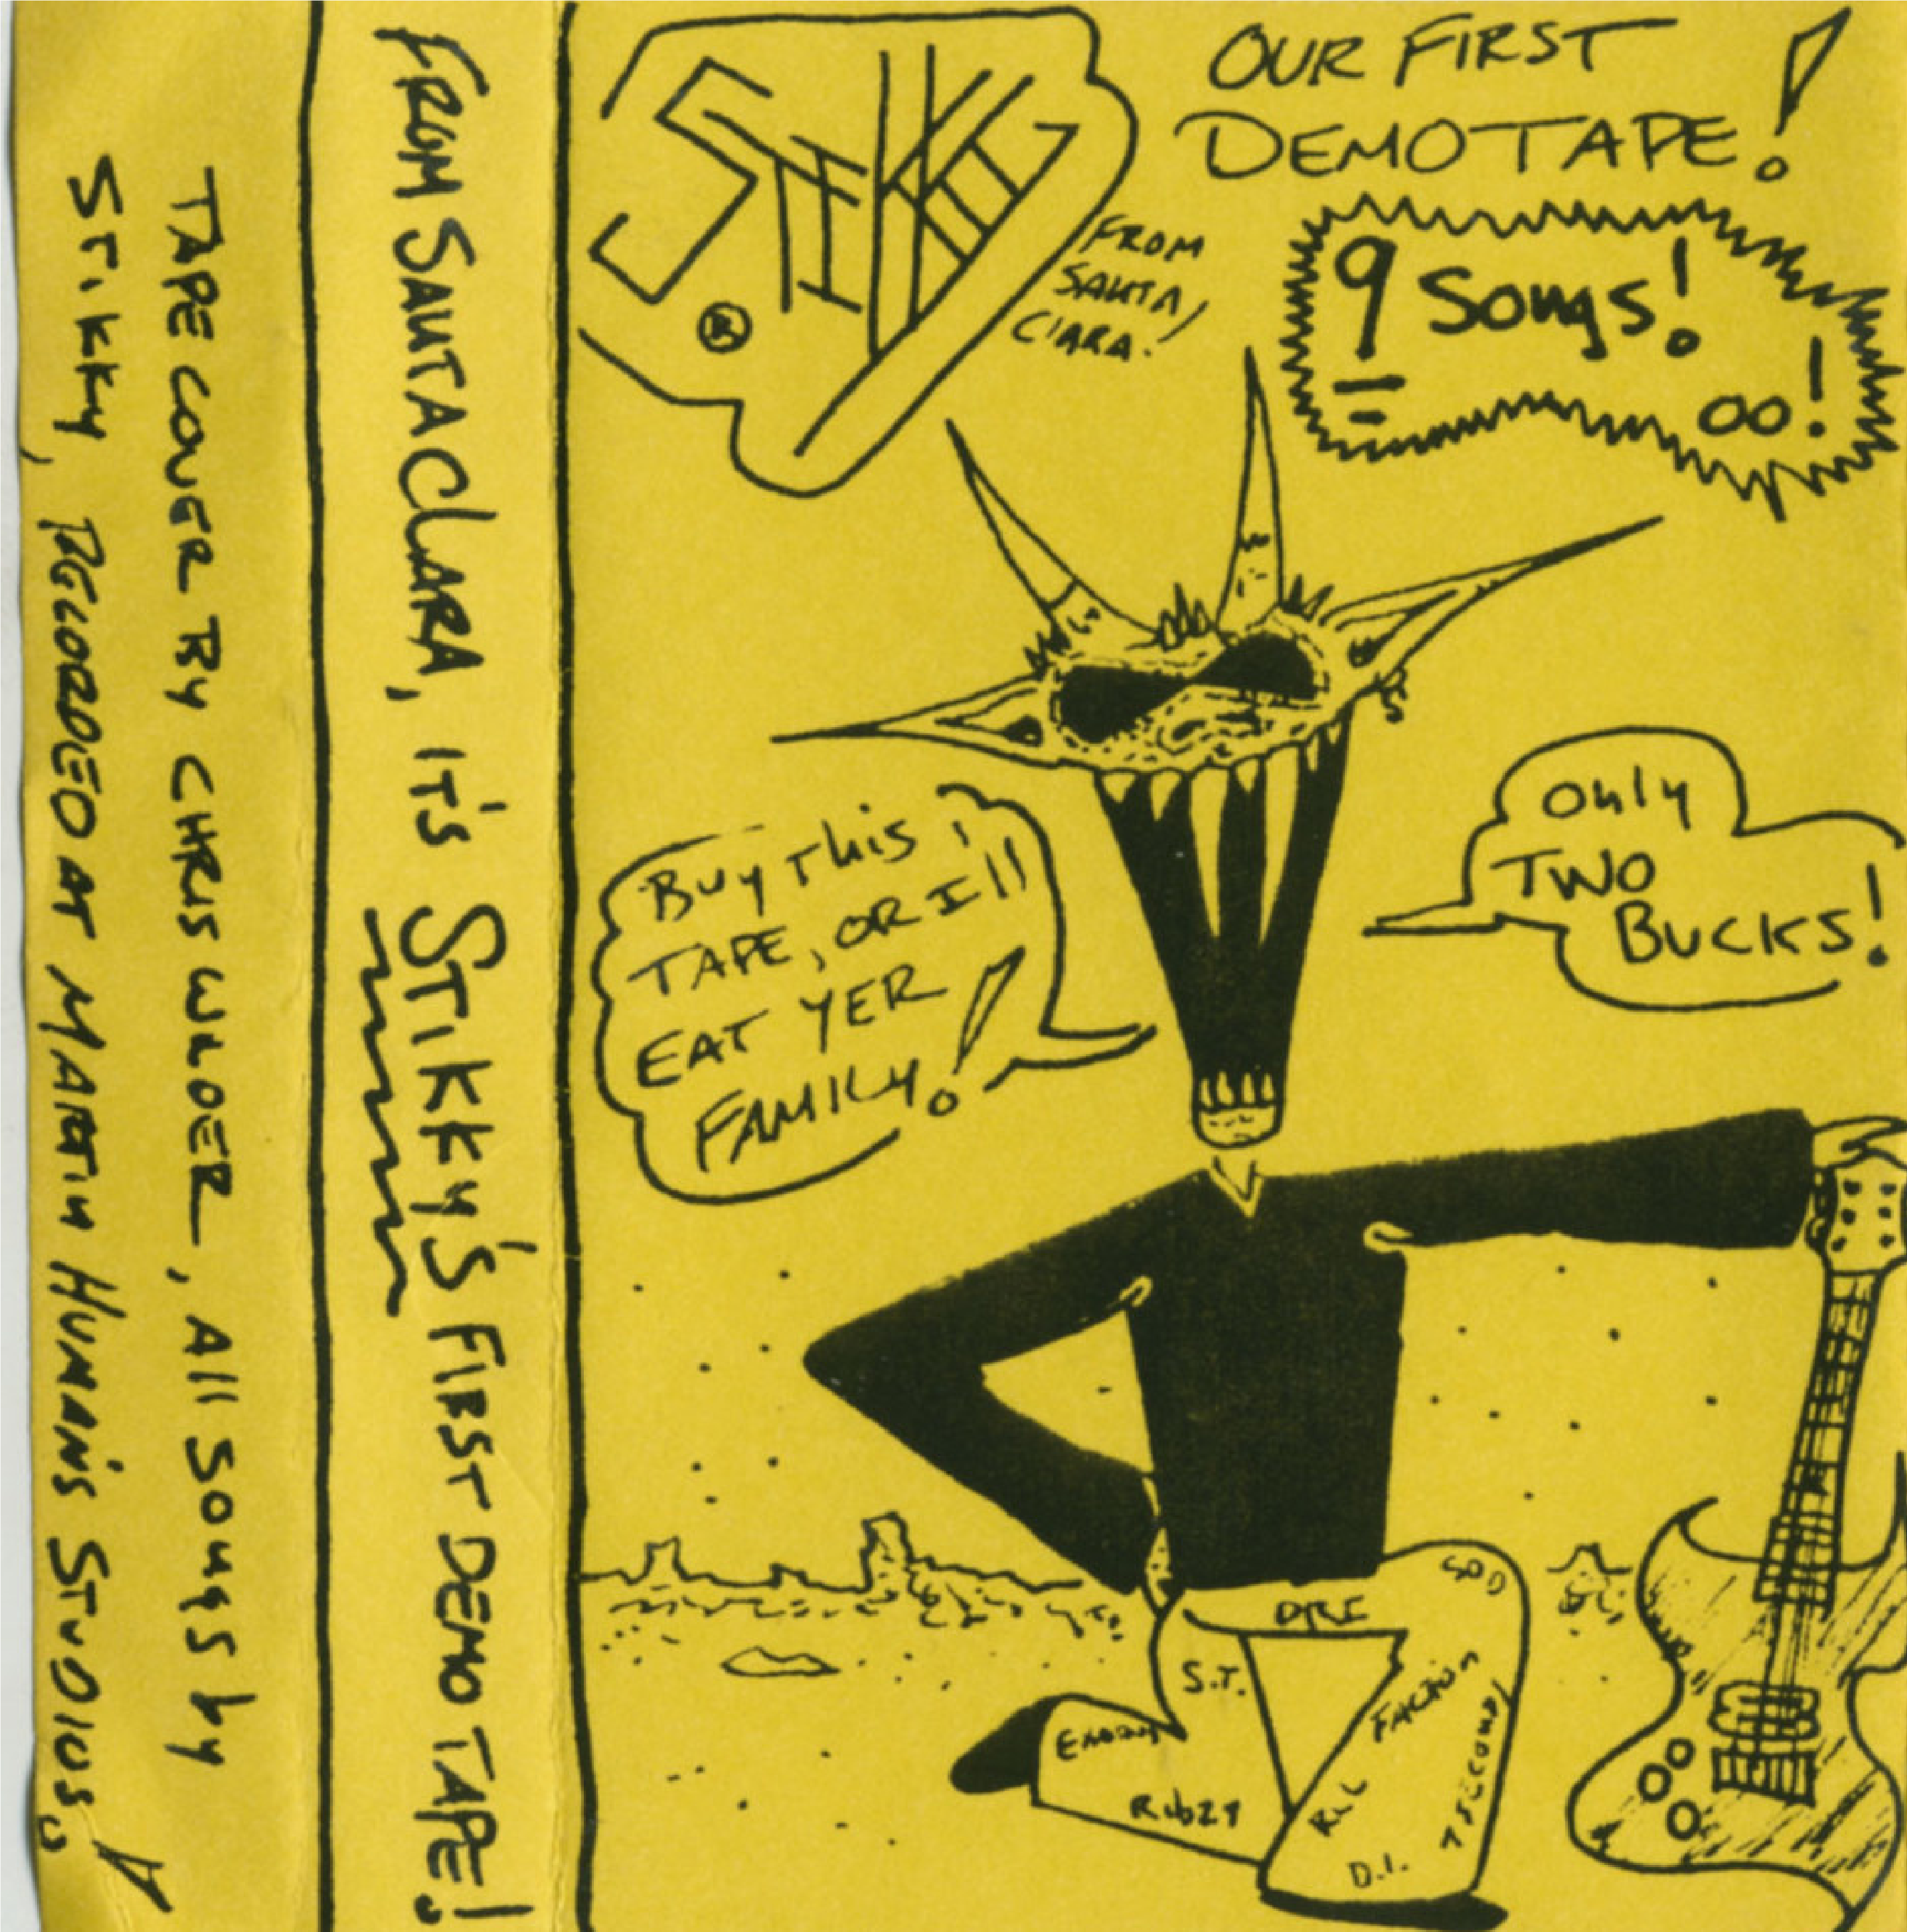 TAPE COVER BY CHRIS WILDER, All SONGS by
STiKKy, RECORDED AT MARTIN HUMAN'S STUDIOS!
FROM SANTA CLARA, IT'S STiKKY'S FIRST DEMO TAPE!
STiKKY
®
FROM
SANTA
CLARA!
OUR FIRST
DEMO TAPE!
9 Songs!
Buy This
TAPE, OR I'll
EAT YER
FAMILY!
Only
TWO
BUCKS!
SOD
DRI
S.T.
FACTION
7 SECONDS
RKL
D.I.